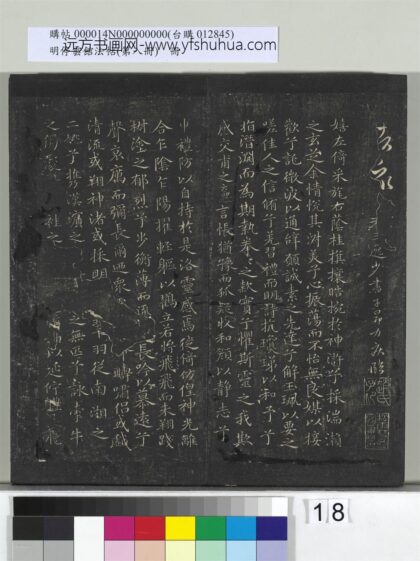 購帖 000014N000000000(台購 012845)
远方书画网-www.yfshuhua.com
嬉左倚采旄右蔭桂旗攘皓捥於神滸兮採湍瀨
之玄芝余情悅其淑美兮心振蕩而不怡無良媒以接
歡兮託微波以通辭願誠素之先達兮解玉珮以要之
嗟佳人之信脩兮羌習禮而明詩抗瓊珶以和予兮
指潛淵而為期執拳〻之款實兮懼斯靈之我欺
感交甫之棄言悵猶豫而狐疑收和顏以靜志兮
申禮防以自持於是洛靈感焉徙倚仿偟神光離
合乍陰乍陽擢輕軀以鶴立若將飛而未翔踐
椒塗之郁烈兮步衡薄而流 長吟以慕遠兮
聲哀厲而彌長爾迺衆 疇嘯侶或戲
清流或翔神渚或採明 翠羽從南湘之
二妃兮攜漢濱之 之無匹兮詠牽牛
之獨處 袿之 以延佇 飛
18